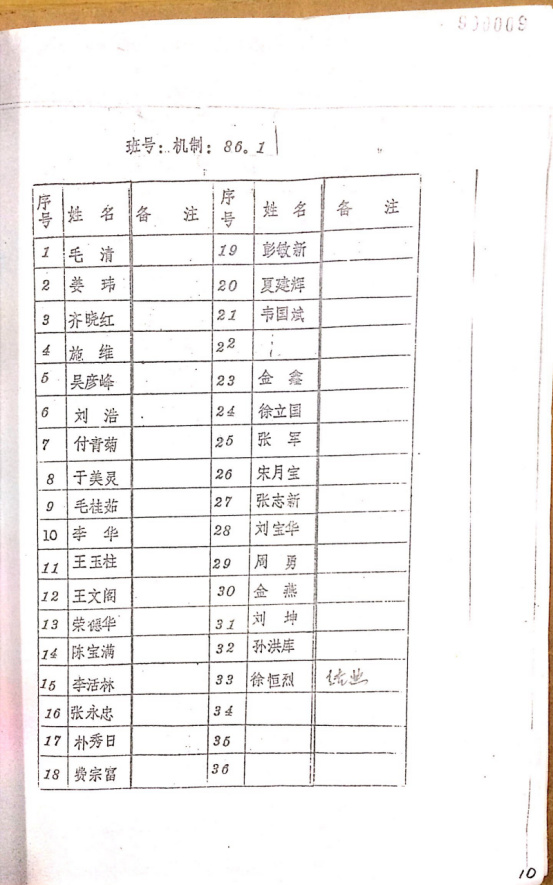 班号:机制:86.1
序号 姓名 备注 序号 姓名 备注
1 毛清 19 彭敏新
2 姜玮 20 夏建辉
3 齐晓红 21 韦国斌
4 施维 22
5 吴彦峰 23 金鑫
6 刘浩 24 徐立国
7 付青菊 25 张军
8 于美灵 26 宋月宝
9 毛桂茹 27 张志新
10 李华 28 刘宝华
11 王玉柱 29 周勇
12 王文阁 30 金燕
13 荣德华 31 刘坤
14 陈宝满 32 孙洪库
15 李活林 33 徐恒烈
16 张永忠 34
17 朴秀日 35
18 费宗富 36
10